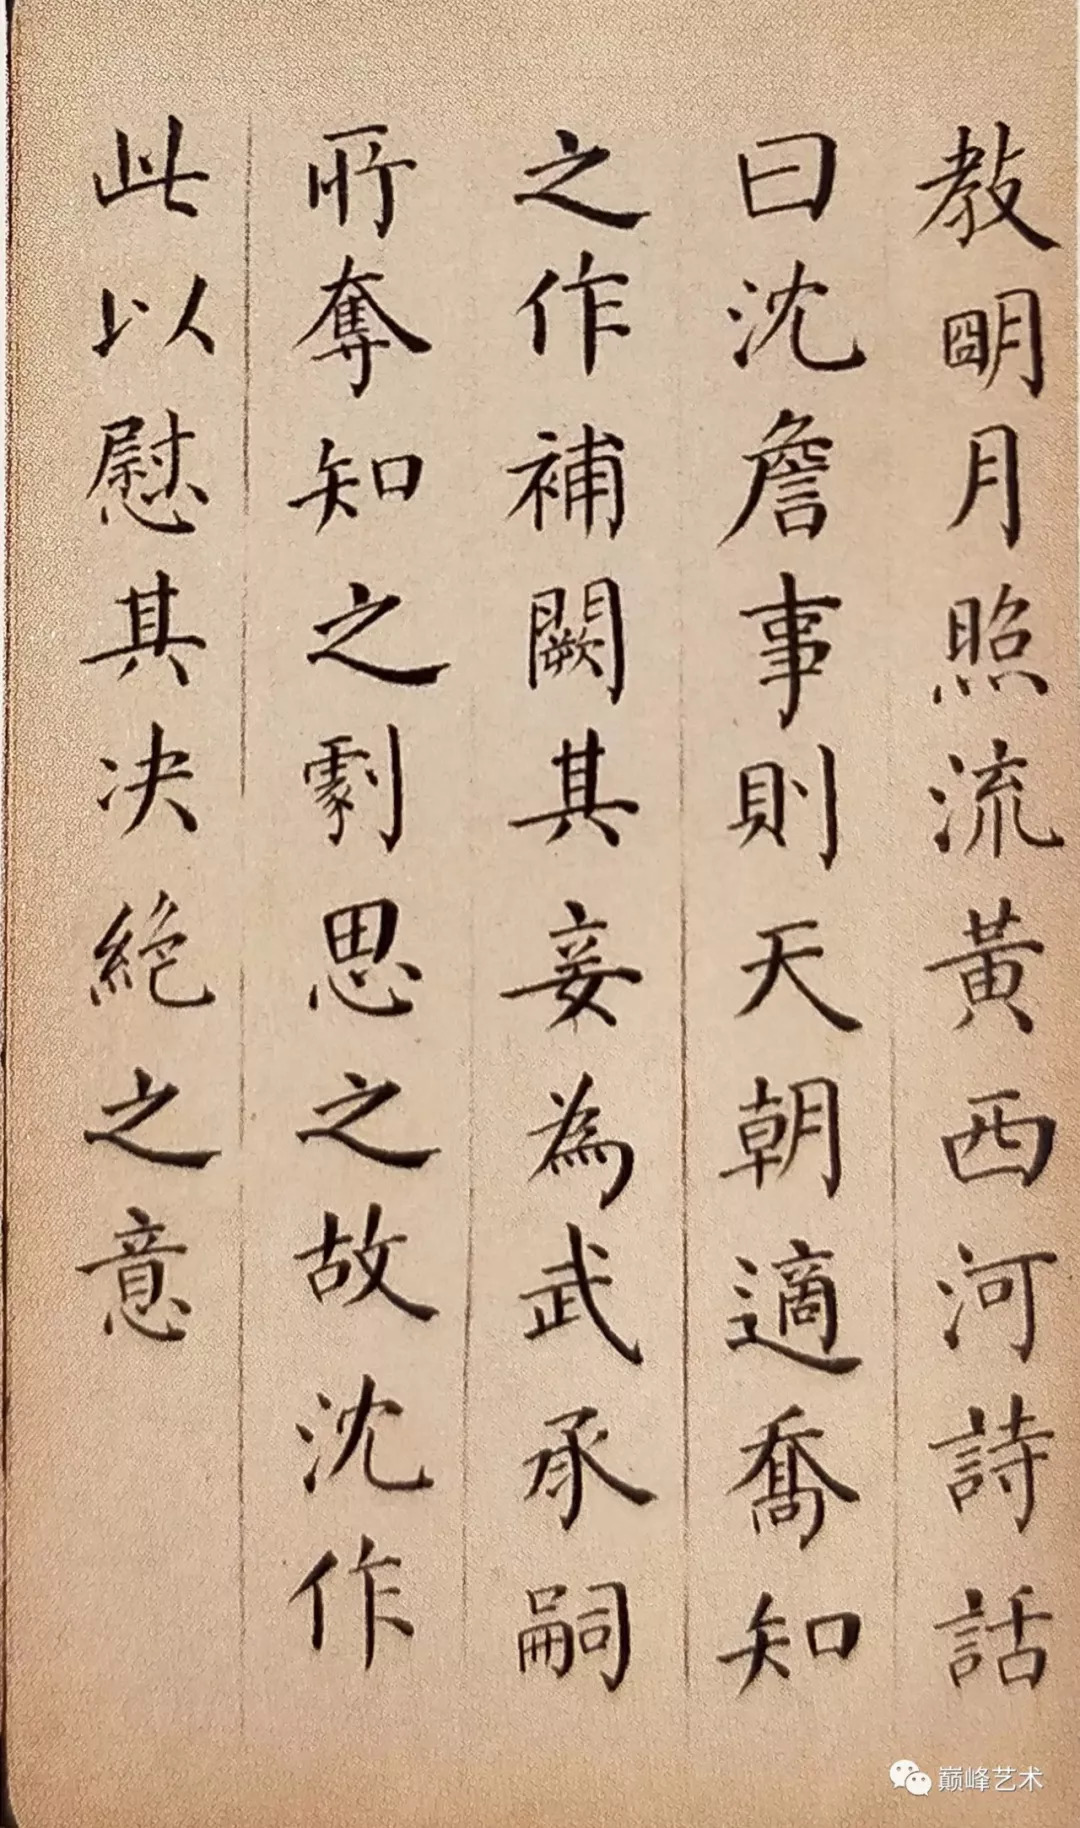 教明月照流黃西河詩話
曰沈詹事則天朝適喬知
之作補闕其妾為武承嗣
所奪知之劇思之故沈作
此以慰其決絕之意
巅峰艺术